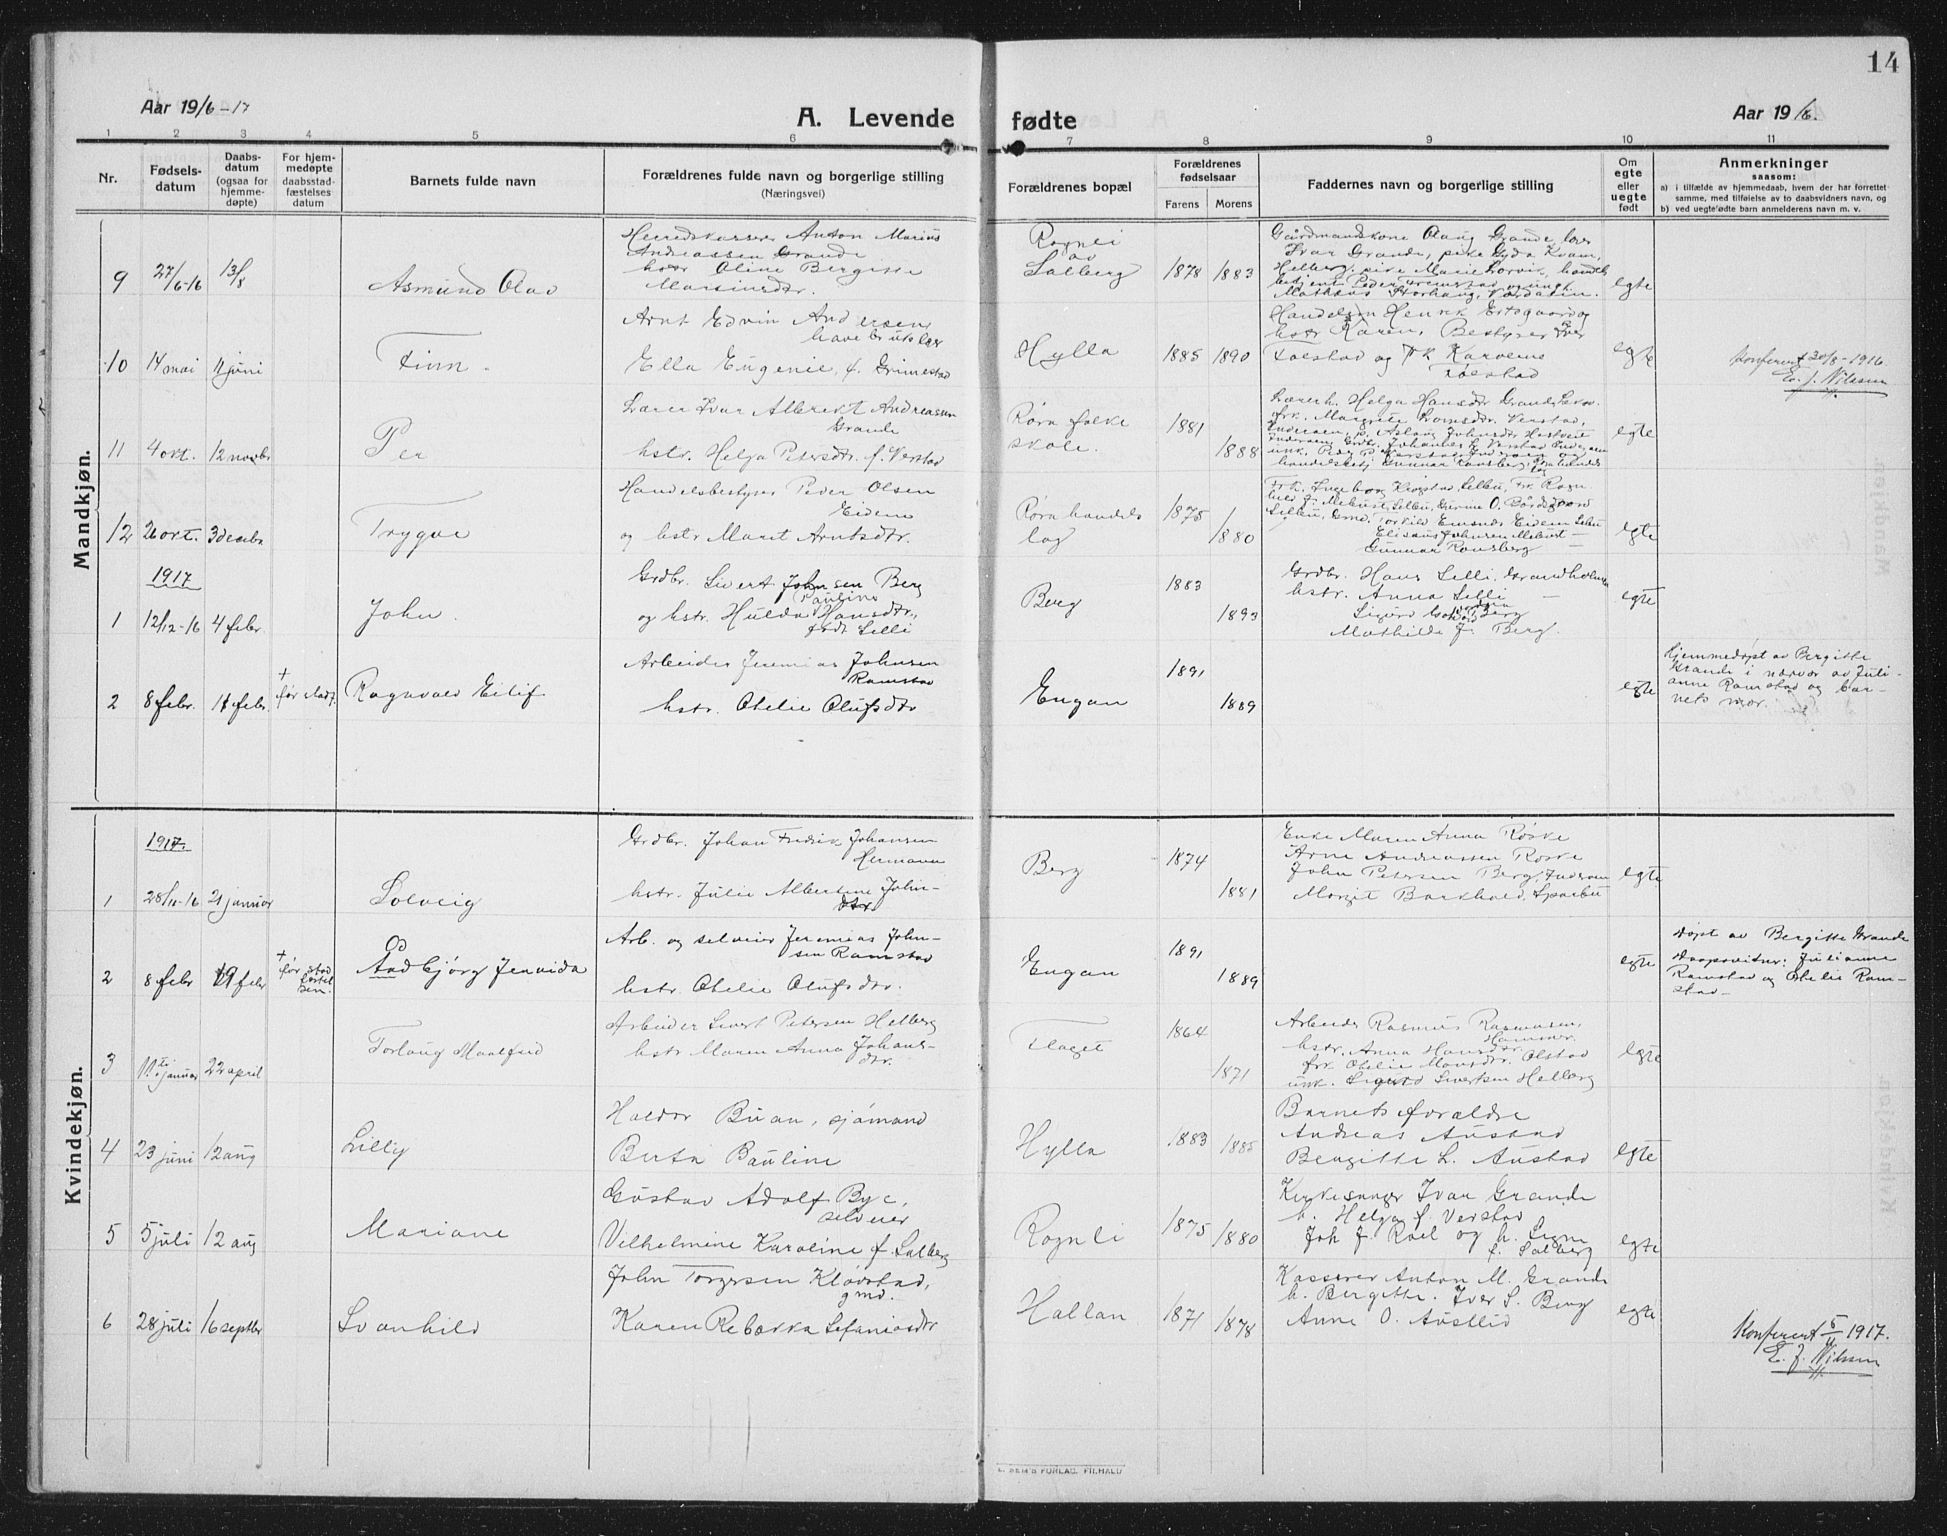 14
Aar 1916-17
A. Levende fødte
Aar 1916.
1 2 3 4 5 6 7 8 9 10 11
Nr.
Fødsels-
datum
Daabs-
datum
(ogsaa for
hjemme-
døpte)
For hjem-
medøpte
daabsstad-
fæstelses
datum
Barnets fulde navn
Forældrenes fulde navn og borgerlige stilling
(Næringsvei)
Forældrenes bopæl
Forældrenes
fødselsaar
Farens Morens
Faddernes navn og borgerlige stilling
Om
egte
eller
uegte
født
Anmerkninger
saasom:
a) i tilfælde av hjemmedaab, hvem der har forrettet
samme, med tilføielse av to daabsvidners navn, og
b) ved uegtefødte barn anmelderens navn m. v.
Mandkjøn.
9 27/6-16 13/8 Asmund Olav
Herredskasserer Anton Marius
Andreassen Grande
hstr Oline Bergitte
Marsinsdtr.
Rognli
av
Salberg
1878 1883
Gårdmandskone Olaug Grande, lærer
Ivar Grande, pike Gyda Kvam,
Helberg, pike Marie Lorvik, handels
betjent Peder Tremstad og ungk.
Mathæus Storhaug, Værdalen.
egte
10 14 mai 11 juni Finn.
Arnt Edvin Andersen,
havebrukslær
Ella Eugenie, f. Grimestad
Hylla
1885 1890
Handelsm Henrik Ertsgaard og
hstr Karen, Bestyrer Iver
Følstad og Frk Karoline
Følstad
egte
Konferert 30/8-1916.
E. J. Nilssen
11 4 okt. 12 novbr Per
Lærer Ivar Albrekt Andreassen
Grande
hstr. Helga Petersdtr. f. Verstad
Røra folke
skole.
1881
1888
Lærerh. Helga Hansdtr Grande
frk. Margrete Verstad,
Inderøen, p. Aslaug Johnsdtr
Inderøen, Grdbr. Johannes Verstad
unk. Peder P. Verstad Inderøen og
handelsbetj Gunnar Ronsberg
egte
12 26 okt. 3 decebr Trygve
Handelsbestyrer Peder Olsen
Eidem
og hstr Marit Arntsdtr.
Røra handels
lag
1875
1880
Frk. Ingeborg Kvistad, Selbu, Frk Ragn
hild J. Mebust, Selbu, Gurine O. Bårdsgaard
Selbu, Gmd. Torkild Eidem Selbu
Johnsen Mebust —
Gunnar Ronsberg —
egte
1917
1 12/12-16 4 febr. John.
Grdbr. Sivert Johnsen Berg
Pauline
og hstr. Hulda Hansdtr,
født Lilli
Berg
1883
1893
Grdbr. Hans Lilli, Grandholmen
hstr. Anna Lilli —
Sigurd Berg
Mathilde J. Berg.
egte
2 8 febr. 18 febr. † før stadf. Ragnvald Eilif
Arbeider Jeremias Johnsen
Ramstad
hstr. Otelie Olufsdtr
Engan
1891
1889
egte
Hjemmedøpt av Bergitte
Grande i nærvær av Juli-
anne Ramstad og bar-
nets mor.
Kvindekjøn.
1917.
1 28/11-16 21 januar Solveig
Grdbr. Johan Fredrik Johansen
Hermann
hstr. Julie Albertine John-
dtr
Berg
1874
1881
Enke Maren Anna Røske
Arne Andreassen Røske
John Petersen Berg, Inderøen
Margit Barkhald, Sparbu
egte
2 8 febr 19 febr † før stad
fæstel
sen. Aadbjørg Jenvida
Arb. og selveier Jeremias John-
sen Ramstad
hstr. Otelie Olufsdtr.
Engan
1891
1889
egte
Døpt av Bergitte Grande
Daapsvitner: Julianne
Ramstad og Otelie Ram-
stad —
3 11te januar 22 april Torlaug Maalfrid
Arbeider Sivert Petersen Helberg
hstr. Maren Anna Johans-
dtr.
Flaget
1864
1871
Arbeider Rasmus Rasmussen,
Hammer.
hstr. Anna Hansdtr
frk Otelie Monsdtr. Olstad
unk. Sigurd Sivertsen Helberg
egte
4 23 juni 12 aug Lilly
Haldor Buan, sjømand
Berta Pauline
Hylla
1883 1885
Barnets forældre
Andreas Austad
Bergitte L. Austad
egte
5 5 juli 12 aug Mariane
Gustav Adolf Bye,
selveier
Vilhelmine Karoline f. Salberg
Rognli
1875 1880
Kirkesanger Ivar Grande
h. Helga f. Verstad
Joh J. Roel og h. Signe
f. Salberg
egte
6 28 juli 16 septbr Svanhild
John Torgersen Kløvstad,
gmd.
Karen Rebækka Sefaniasdtr
Hallan
1871 1878
Kasserer Anton M. Grande
h. Bergitte. Iver S. Berg
Anne O. Austlid
egte
Konferert 5/11 1917.
E. J. Nilssen
E. SEM'S FORLAG, F.HALD